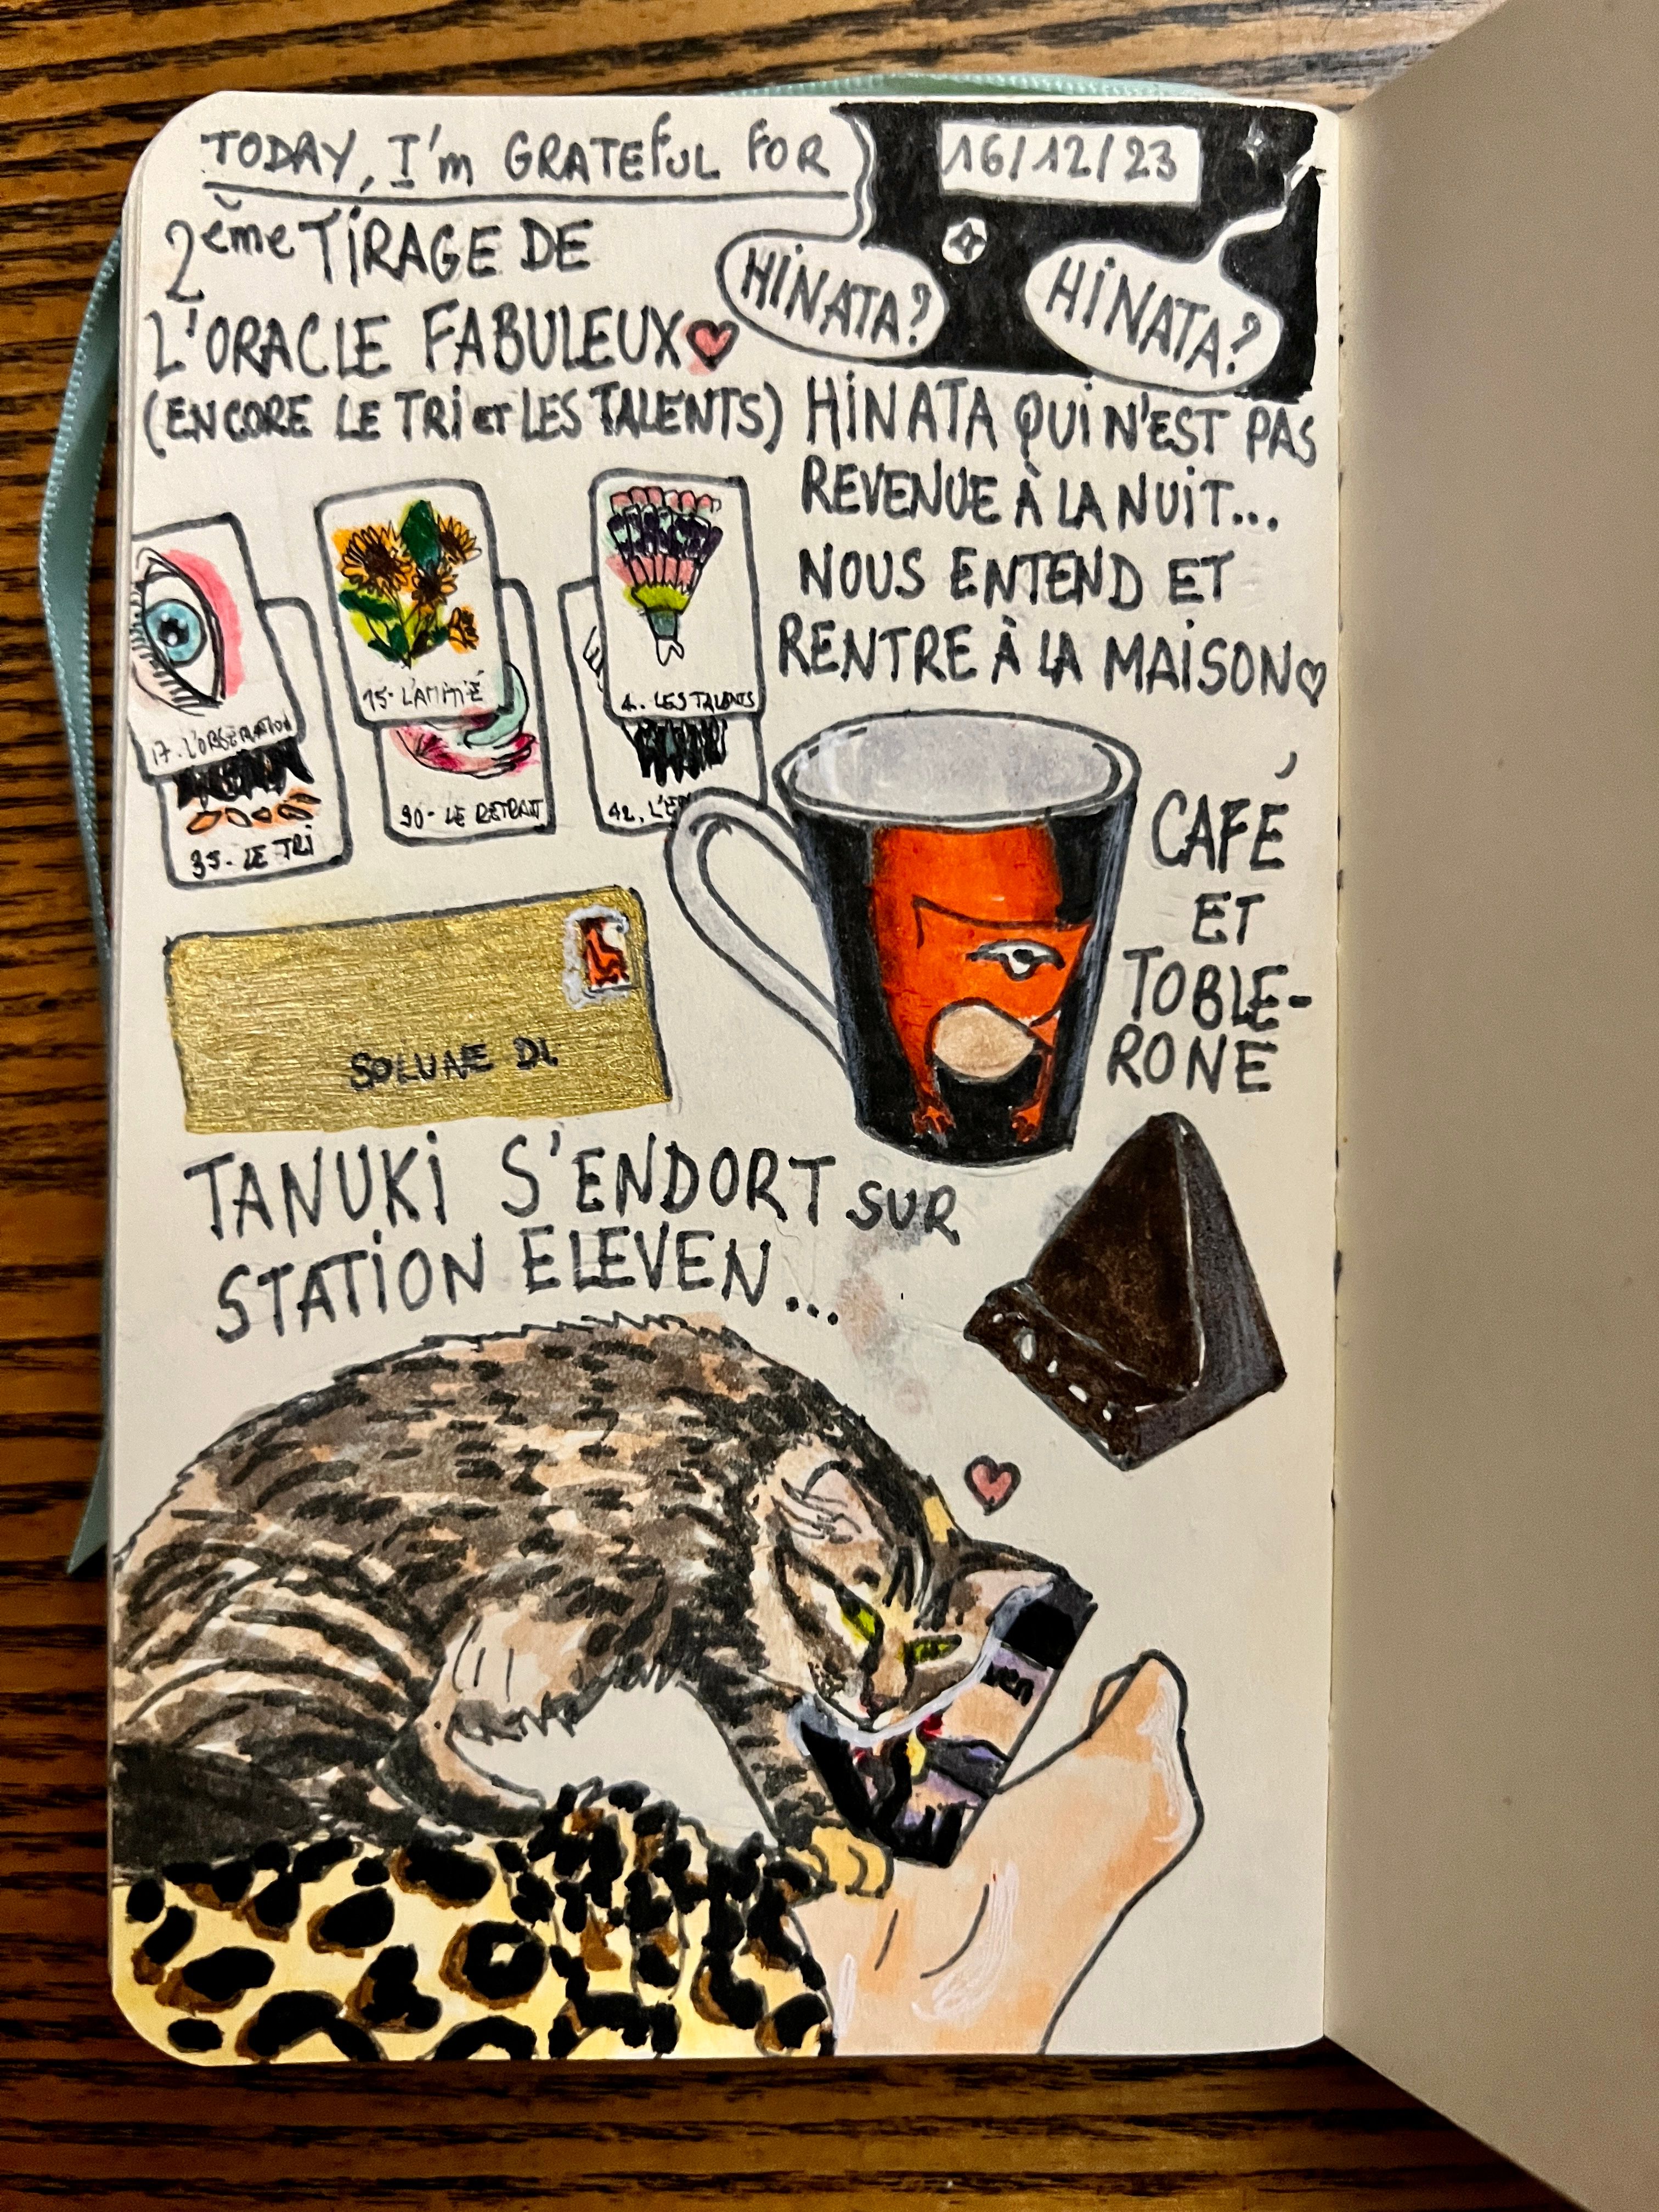 TODAY, I'm GRATEFUL FOR
16/12/23
2ème TIRAGE DE
L'ORACLE FABULEUX
(ENCORE LE TRI et LES TALENTS)
HINATA?
HINATA?
HINATA QUI N'EST PAS
REVENUE À LA NUIT...
NOUS ENTEND ET
RENTRE À LA MAISON
17. L'OBSERVATION
35- LE TRI
15- L'AMITIÉ
30- LE RETRAIT
4. LES TALENTS
42.
CAFÉ
ET
TOBLE-
RONE
SOLUNE DL
TANUKI S'ENDORT SUR
STATION ELEVEN...